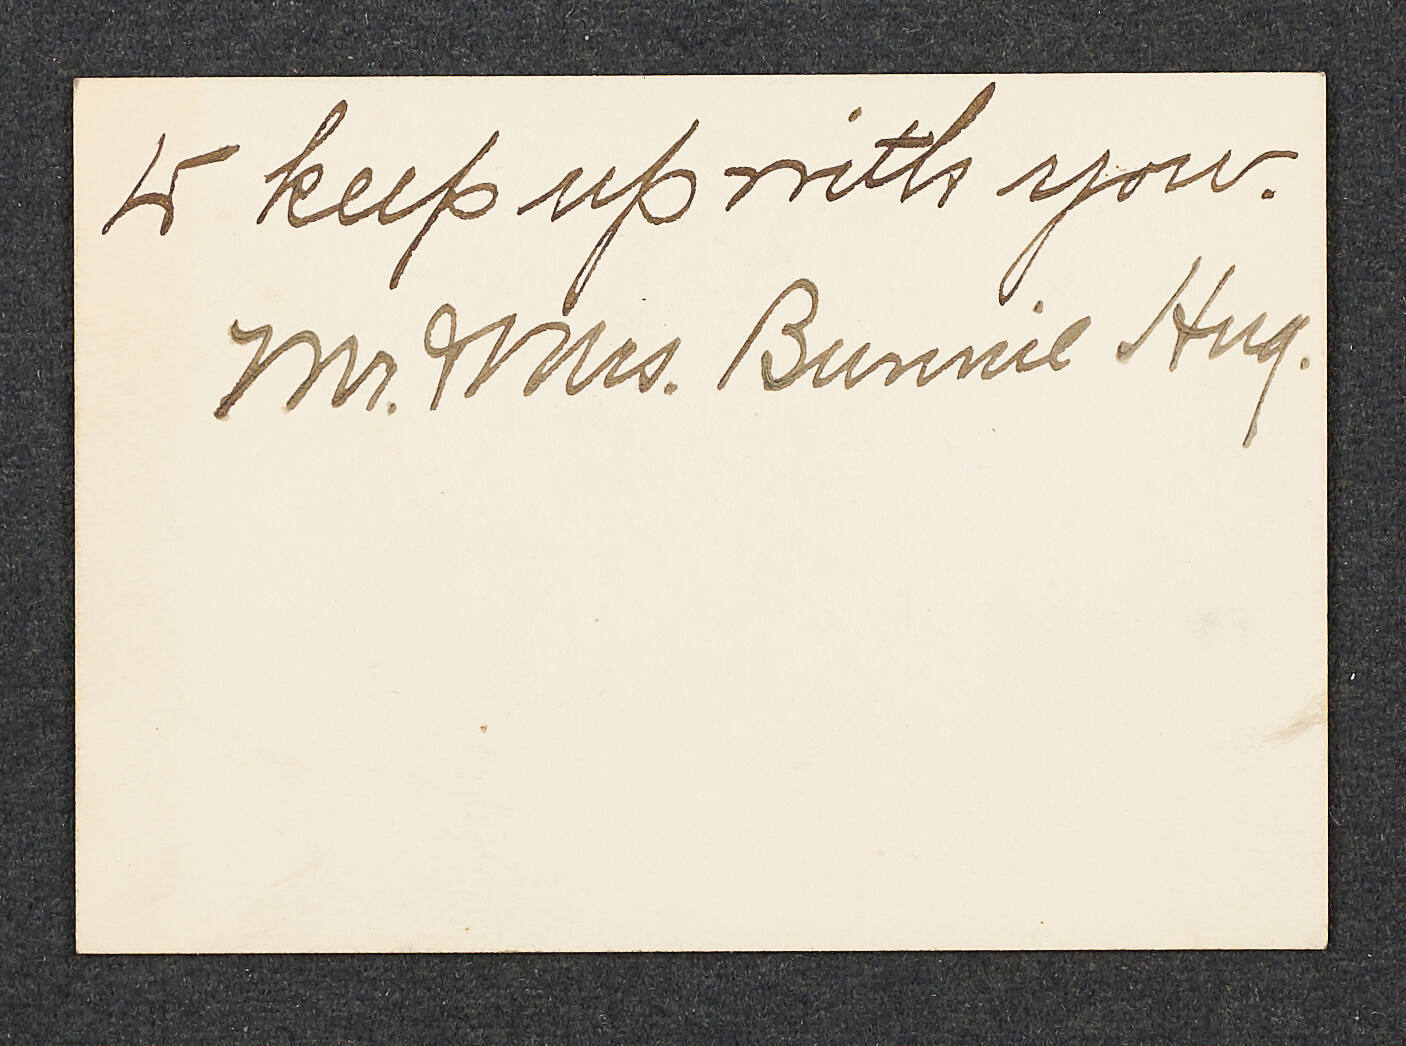 to keep up with you.
Mr. & Mrs. Bunnie Hug.